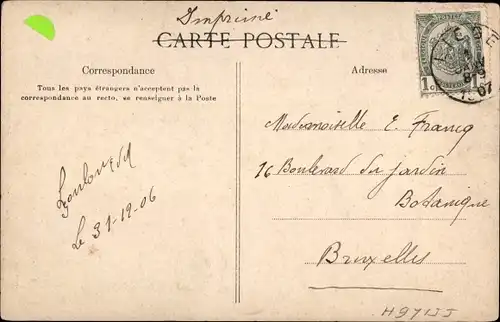 Imprimé
CARTE POSTALE
Correspondance
Adresse
Tous les pays étrangers n'acceptent pas la
correspondance au recto, se renseigner à la Poste
1 1
1907
Mademoiselle E. Francq
76 Boulevard du Jardin
Botanique
Bruxelles
le 31-12-06
H971JJ